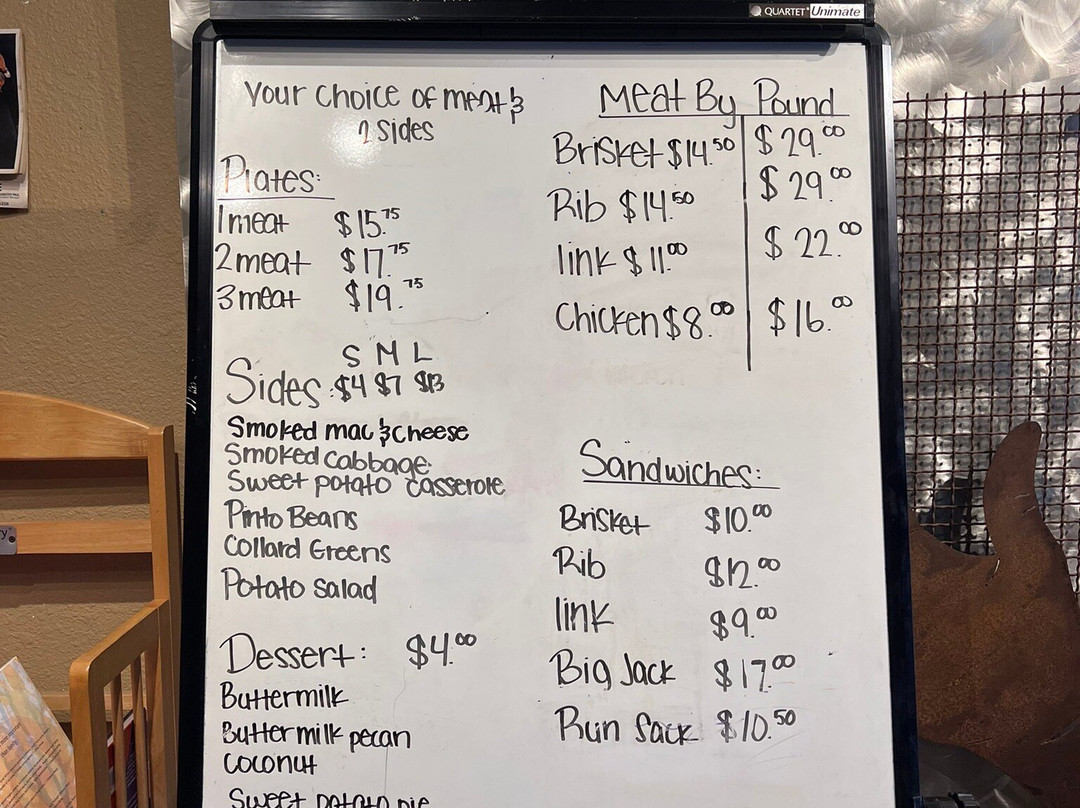 QUARTET Unimate
Your choice of meat &
2 sides
Plates:
1 meat $15.75
2 meat $17.75
3 meat $19.75
S M L
Sides: $4 $7 $13
Smoked mac & cheese
Smoked cabbage
Sweet potato casserole
Pinto Beans
Collard Greens
Potato salad
Dessert: $4.00
Buttermilk
Buttermilk pecan
Coconut
Sweet potato pie
Meat By Pound
Brisket $14.50 $29.00
Rib $14.50 $29.00
link $11.00 $22.00
Chicken $8.00 $16.00
Sandwiches:
Brisket $10.00
Rib $12.00
link $9.00
Big Jack $17.00
Run Sack $10.50